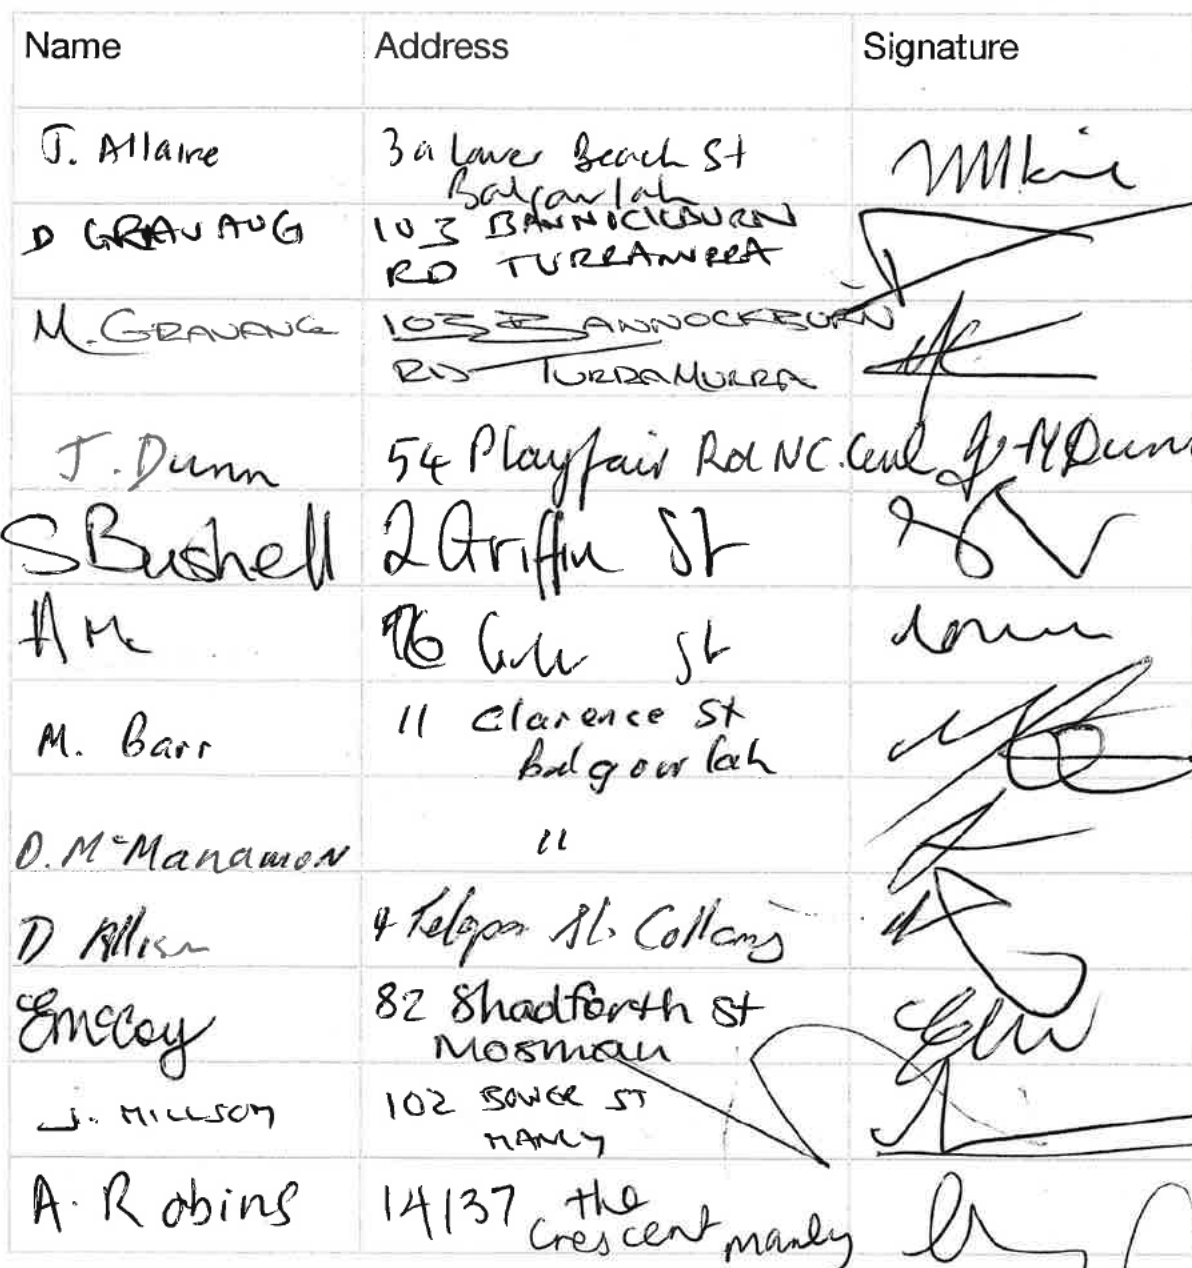 Name Address Signature
J. Allaire 3a Lower Beach St
Balgowlah
D GRAVAUG 103 BANNICKBURN
RD TURRAMURRA
M. GRAVANG 103 BANNOCKBURN
RD TURRAMURRA
J. Dunn 54 Playfair Rd NC. J M Dunn
S Bushell 2 Griffin St
A M 76 St
M. Barr 11 Clarence St
Balgowlah
D. McManamon "
D 4 Telopea St. Collaroy
E McCoy 82 Shadforth St
Mosman
J. MILLSOM 102 BOWER ST
MANLY
A. Robins 14/37 the
Crescent Manly